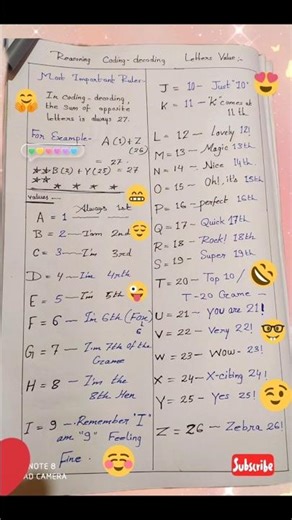 Reasoning Coding-decoding Letters Value:-
Most Important Rule:-
In coding-decoding,
the sum of opposite
letters is always 27.
For Example-
A(1)+Z
(26)
= 27
B(2)+Y(25) = 27
Values:-
A = 1 — Always 1st
B = 2 — I'm 2nd
C = 3 — I'm 3rd
D = 4 — I'm 4th
E = 5 — I'm 5th
F = 6 — In 6th (Fox)
6
G = 7 — I'm 7th of the
Game
H = 8 — I'm the
8th Hen
I = 9 — Remember "I"
am "9" Feeling
Fine.
J = 10 — Just "10"
K = 11 — "K" comes at
11th
L = 12 — lovely 12!
M = 13 — Magic 13th
N = 14 — Nice 14th.
O = 15 — Oh!, it's 15th
P = 16 — perfect 16th
Q = 17 — Quick 17th
R = 18 — Rock! 18th
S = 19 — Super 19th
T = 20 — Top 10/
T-20 Game —
U = 21 — you are 21!
V = 22 — Very 22!
W = 23 — Wow- 23!
X = 24 — X-citing 24!
Y = 25 — Yes 25!
Z = 26 — Zebra 26!
NOTE 8
AD CAMERA
Subscribe